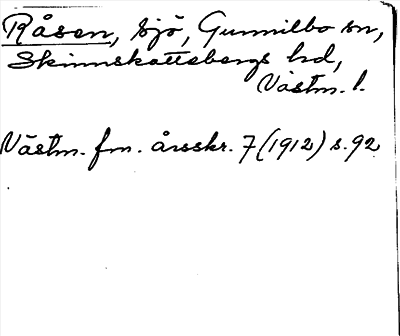 Råsen, sjö, Gunnilbo sn,
Skinnskattebergs hd,
Västm. l.
Västm. fm. årsskr. 7 (1912) s. 92